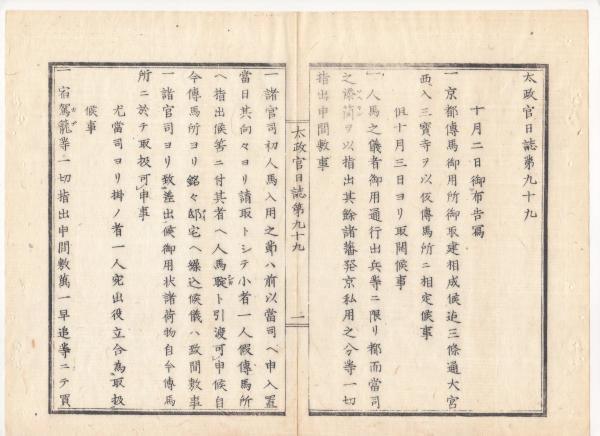 太政官日誌第九十九
十月二日御布告寫
一京都傳馬御用所御取建相成候迄三條通大宮
西入三寶寺ヲ以仮傳馬所ニ相定候事
但十月三日ヨリ取開候事
一人馬之儀者御用通行出兵等ニ限リ都而當司
之添荷ヲ以指出其餘諸藩発京私用之分等一切
指出申間敷事
太政官日誌第九十九
一
一諸官司初人馬入用之節ハ前以當司ヘ申入置
當日其向々ヨリ請取トシテ小者一人假傳馬所
ヘ指出候筈ニ付其者ヘ人馬聢ト引渡可申候自
今傳馬所ヨリ銘々邸宅ヘ繰込候儀ハ致間敷事
一諸官司ヨリ致差出候御用状諸荷物自今傳馬
所ニ於テ取扱可申事
尤當司ヨリ掛ノ者一人宛出役立合為取扱
候事
一宿駕籠等一切指出申間敷萬一早追等ニテ買